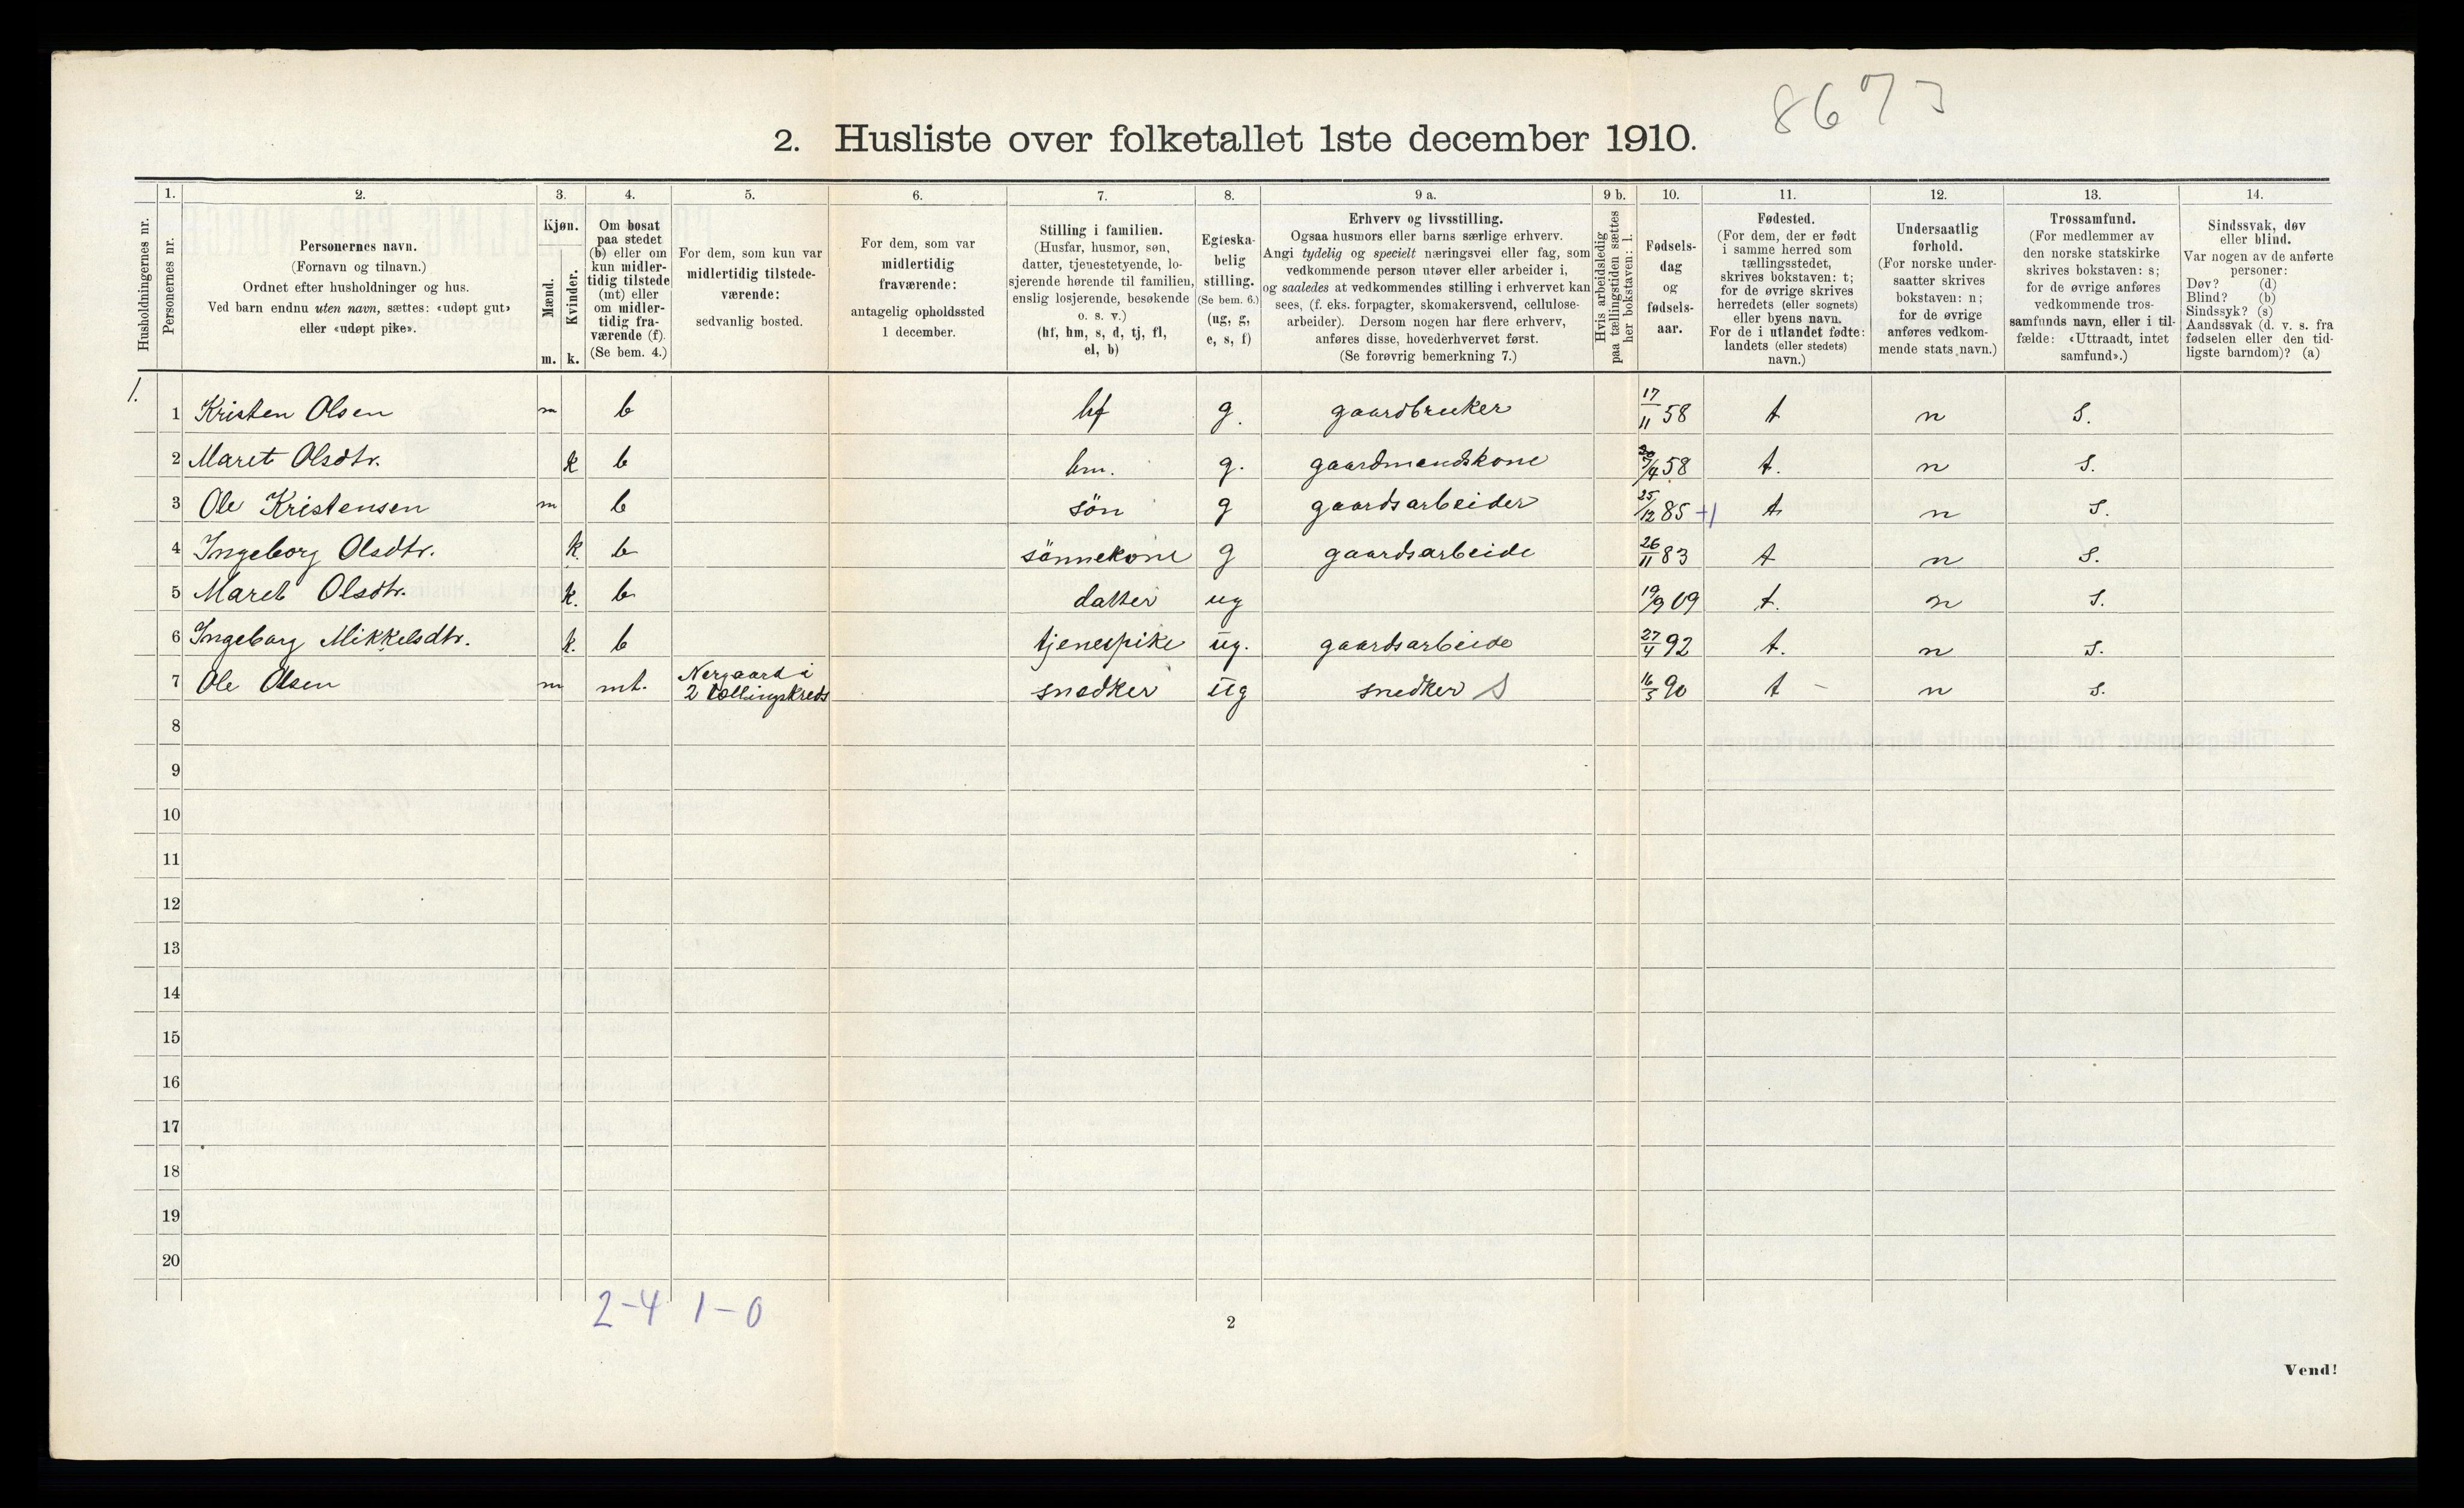 8673
2. Husliste over folketallet 1ste december 1910.
Husholdningernes nr.
1.
Personernes nr.
2.
Personernes navn.
(Fornavn og tilnavn.)
Ordnet efter husholdninger og hus.
Ved barn endnu uten navn, sættes: «udøpt gut»
eller «udøpt pike».
3.
Kjøn.
Mænd.
m.
Kvinder.
k.
4.
Om bosat
paa stedet
(b) eller om
kun midler-
tidig tilstede
(mt) eller
om midler-
tidig fra-
værende (f).
(Se bem. 4.)
5.
For dem, som kun var
midlertidig tilstede-
værende:
sedvanlig bosted.
6.
For dem, som var
midlertidig
fraværende:
antagelig opholdssted
1 december.
7.
Stilling i familien.
(Husfar, husmor, søn,
datter, tjenestetyende, lo-
sjerende hørende til familien,
enslig losjerende, besøkende
o. s. v.)
(hf, hm, s, d, tj, fl,
el, b)
8.
Egteska-
belig
stilling.
(Se bem. 6.)
(ug, g,
e, s, f)
9 a.
Erhverv og livsstilling.
Ogsaa husmors eller barns særlige erhverv.
Angi tydelig og specielt næringsvei eller fag, som
vedkommende person utøver eller arbeider i,
og saaledes at vedkommendes stilling i erhvervet kan
sees, (f. eks. forpagter, skomakersvend, cellulose-
arbeider). Dersom nogen har flere erhverv,
anføres disse, hovederhvervet først.
(Se forøvrig bemerkning 7.)
9 b.
Hvis arbeidsledig
paa tællingstiden sættes
her bokstaven: l.
10.
Fødsels-
dag
og
fødsels-
aar.
11.
Fødested.
(For dem, der er født
i samme herred som
tællingsstedet,
skrives bokstaven: t;
for de øvrige skrives
herredets (eller sognets)
eller byens navn.
For de i utlandet fødte:
landets (eller stedets)
navn.)
12.
Undersaatlig
forhold.
(For norske under-
saatter skrives
bokstaven: n;
for de øvrige
anføres vedkom-
mende stats navn.)
13.
Trossamfund.
(For medlemmer av
den norske statskirke
skrives bokstaven: s;
for de øvrige anføres
vedkommende tros-
samfunds navn, eller i til-
fælde: «Uttraadt, intet
samfund».)
14.
Sindssvak, døv
eller blind.
Var nogen av de anførte
personer:
Døv? (d)
Blind? (b)
Sindssyk? (s)
Aandssvak (d. v. s. fra
fødselen eller den tid-
ligste barndom)? (a)
1. 1 Kristen Olsen m b hf g. gaardbruker 17/11 58 t n S.
2 Maret Olsdtr. k b hm. g. gaardmandskone 58 t. n S.
3 Ole Kristensen m b søn g gaardsarbeider 25/12 85 +1 t n S.
4 Ingeborg Olsdtr. k. b sønnekone g gaardsarbeide 26/11 83 t n S.
5 Maret Olsdtr. k. b datter ug 19/9 09 t. n S.
6 Ingeborg Mikkelsdtr. k. b tjenespike ug. gaardsarbeide 27/4 92 t. n S.
7 Ole Olsen m mt. Nergaard i
2 tællingskreds snedker ug snedker S 16/5 90 t - n S.
8
9
10
11
12
13
14
15
16
17
18
19
20
2-4 1-0
2
Vend!